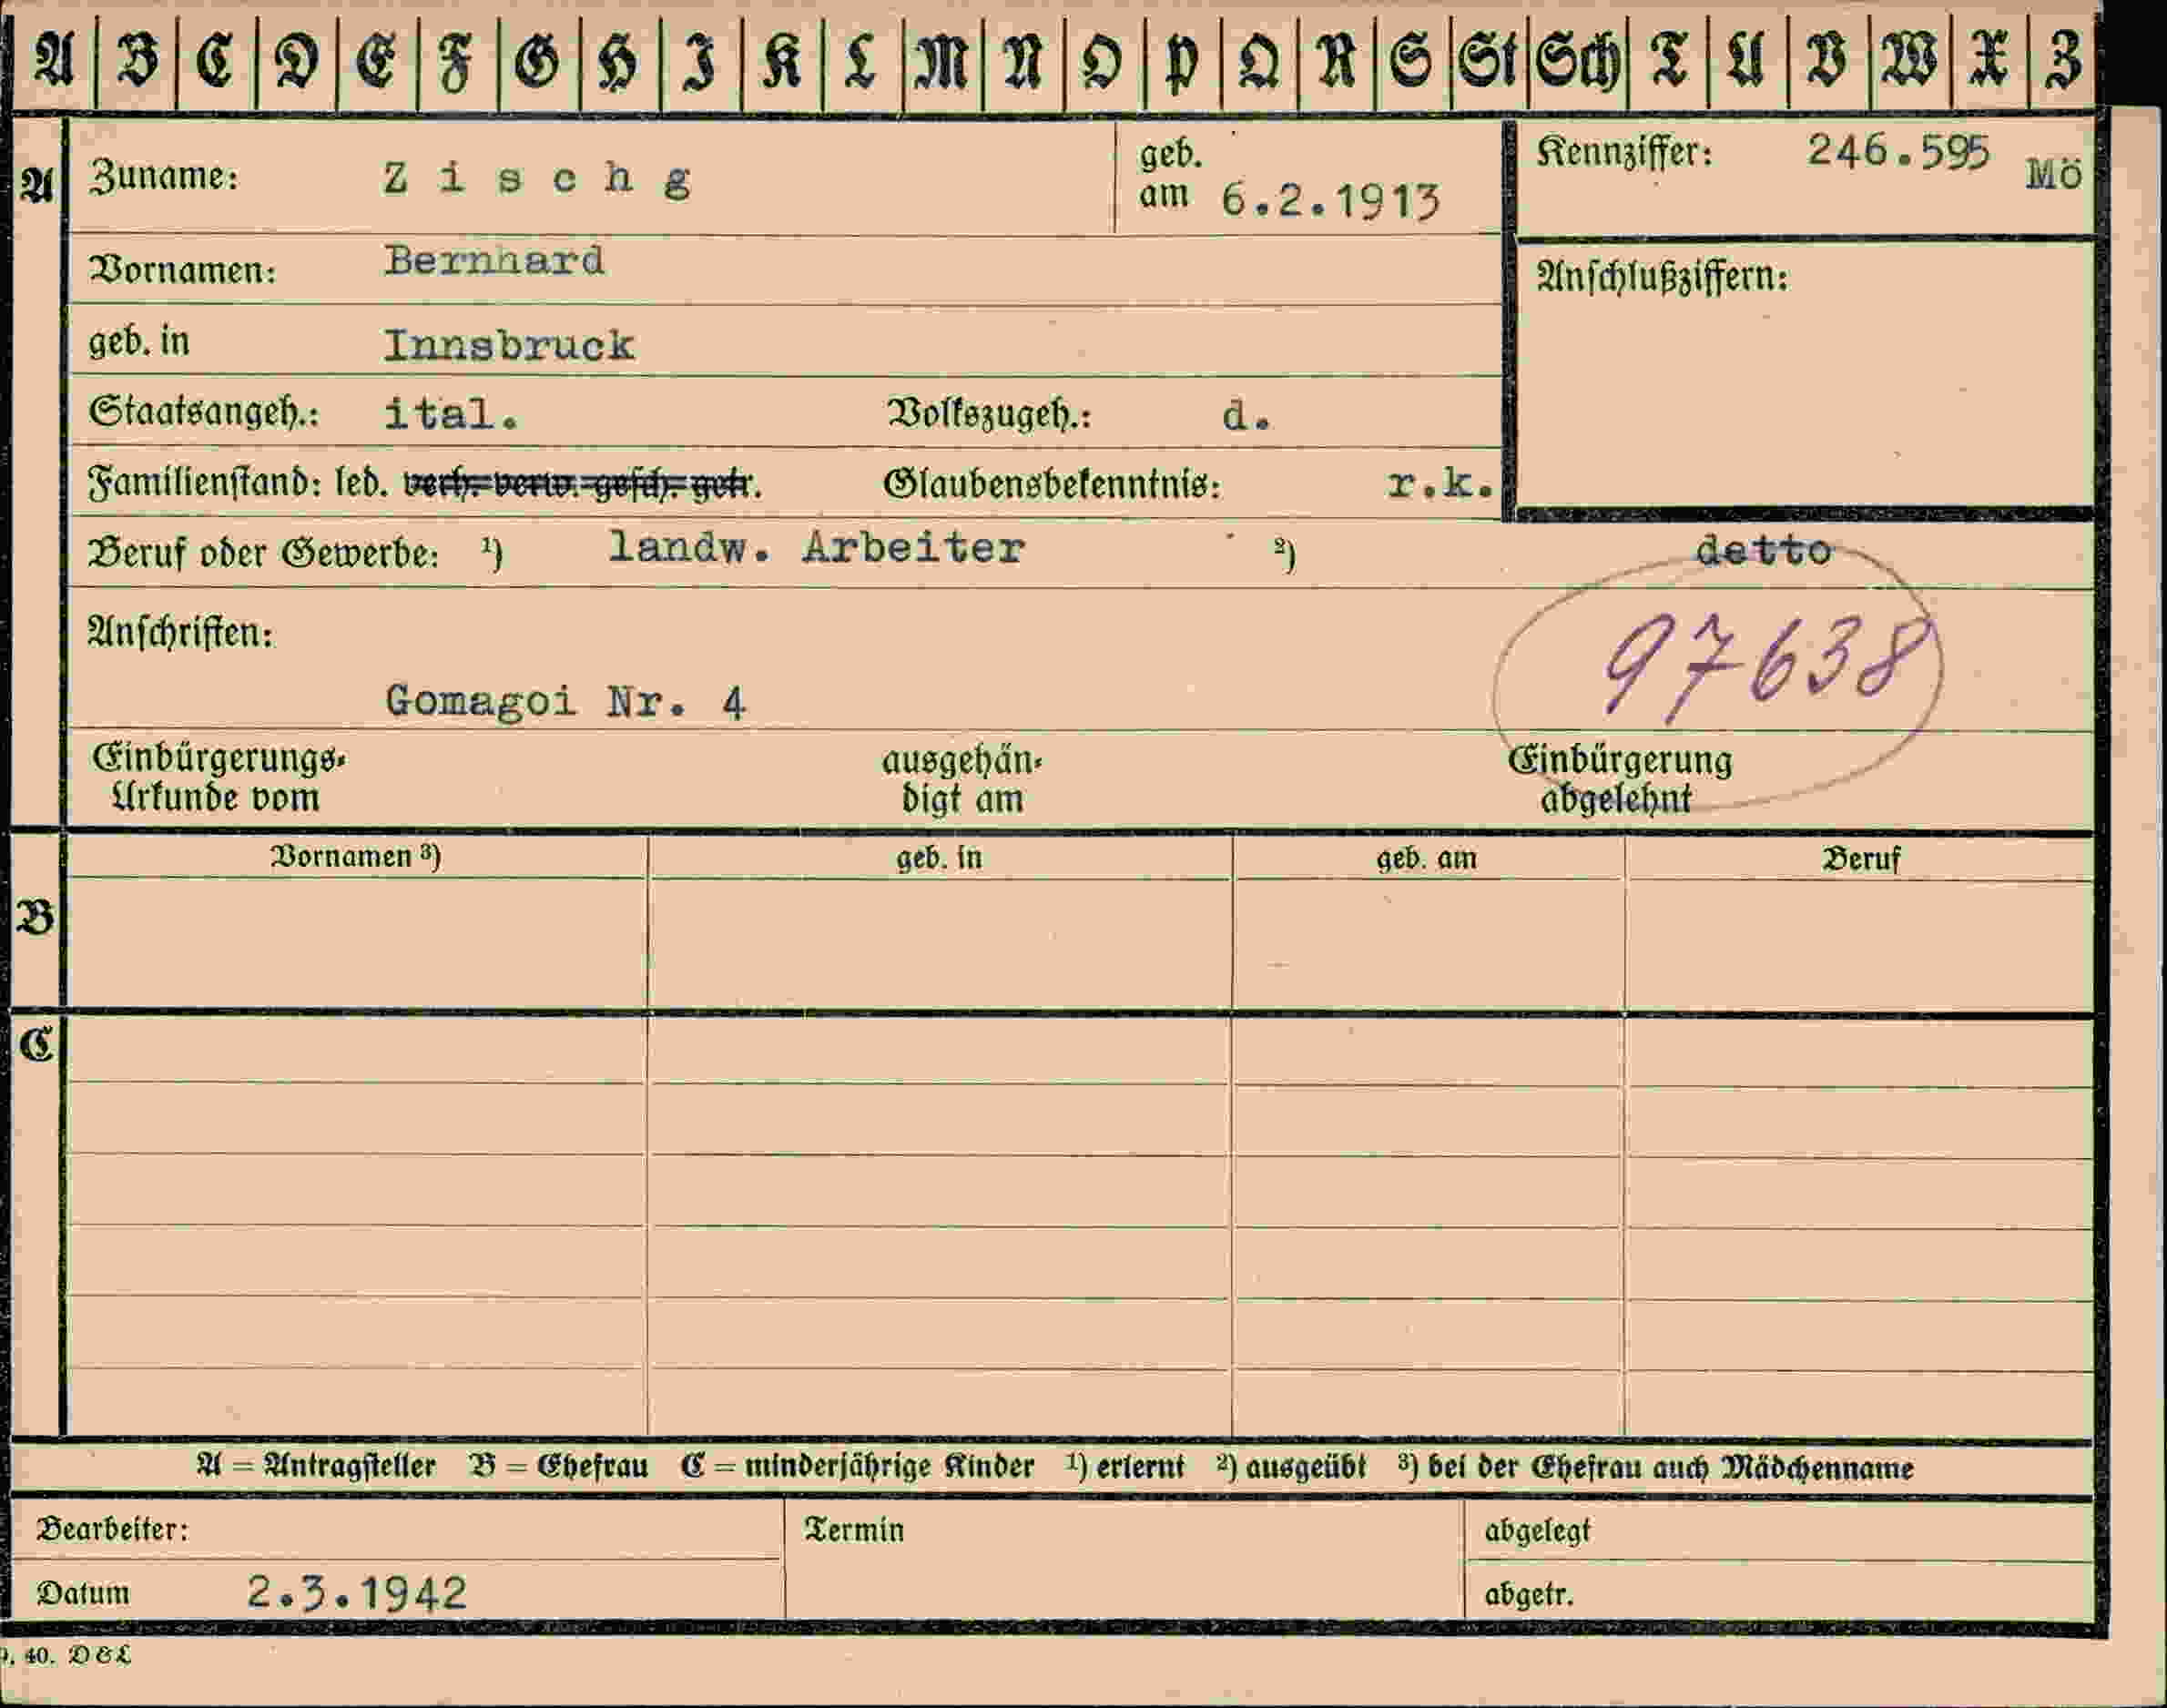 A B C D E F G H I K L M N O P Q R S St Sch T U V W X Z
A Zuname: Zischg geb. am 6.2.1913 Kennziffer: 246.595 Mö
Vornamen: Bernhard Anschlußziffern:
geb. in Innsbruck
Staatsangeh.: ital. Volkszugeh.: d.
Familienstand: led. verh. verw. gesch. getr. Glaubensbekenntnis: r.k.
Beruf oder Gewerbe: ¹) landw. Arbeiter ²) detto
Anschriften: 97638
Gomagoi Nr. 4
Einbürgerungs- ausgehän- Einbürgerung
Urkunde vom digt am abgelehnt
Vornamen ³) geb. in geb. am Beruf
B
C
A = Antragsteller B = Ehefrau C = minderjährige Kinder ¹) erlernt ²) ausgeübt ³) bei der Ehefrau auch Mädchenname
Bearbeiter: Termin abgelegt
Datum 2.3.1942 abgetr.
40. D&L